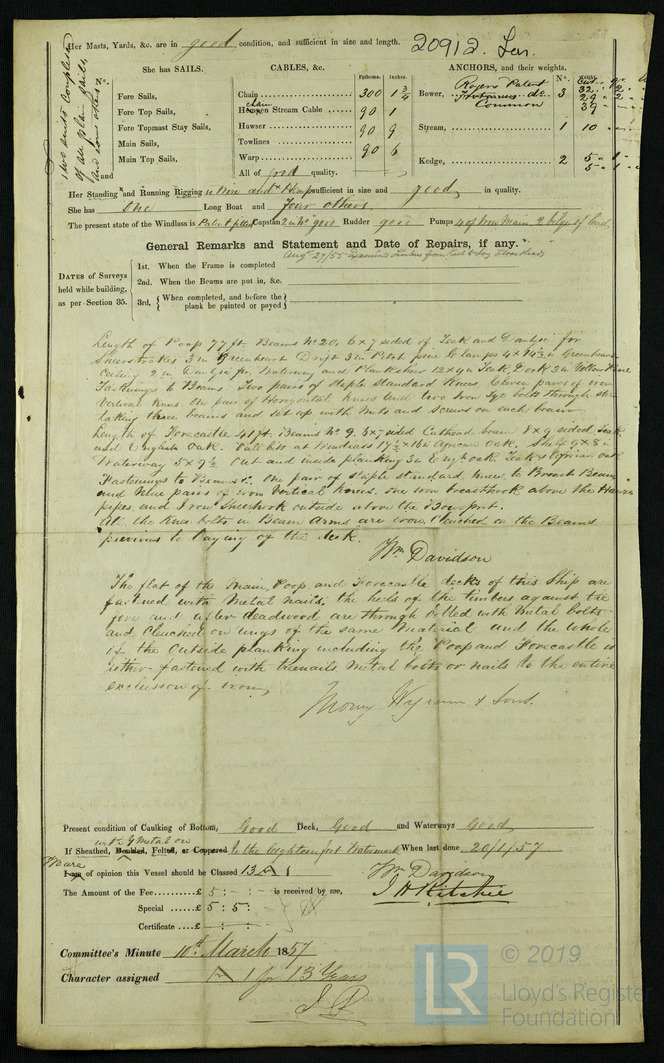 20912. Lon.
Her Masts, Yards, &c. are in good condition, and sufficient in size and length.
She has SAILS.
CABLES, &c.
Fathoms.
Inches.
ANCHORS, and their weights.
Nº.
Weight
Nº.
two suits complete
of all plain sails
and some others
Fore Sails,
Fore Top Sails,
Fore Topmast Stay Sails,
Main Sails,
Main Top Sails,
and
Chain 300 1 3/4
chain
Hempen Stream Cable 90 1
Hawser 90 9
Towlines
Warp 90 6
All of good quality.
Bower, Rogers Patent 3
Common
Stream, 1 10
Kedge, 2 5 " 1 "
5 " 1 "
Her Standing and Running Rigging is Wire and Hemp sufficient in size and good in quality.
She has One Long Boat and Four others
The present state of the Windlass is Patent fitted Capstan 2 in No good Rudder good Pumps 4 of Main 2 bilge of
General Remarks and Statement and Date of Repairs, if any.
Augt 27/55 Examined Timbers from Keel to
DATES of Surveys
held while building,
as per Section 35.
1st. When the Frame is completed
2nd. When the Beams are put in, &c.
3rd, { When completed, and before the
plank be painted or payed }
Length of Poop 77 ft. Beams No 20. 6 x 7 sided of Teak and for
Sheerstrakes 3 in Greenheart Drift 3 in Pitch pine Clamps 4 x in Greenheart
Ceiling 2 in Waterway and Planksheer 12 x 4 in Teak Deck 3 in Yellow Pine
Fastnings to Beams. Two pairs of Staple Standard Knees Eleven pairs of iron
Vertical Knees One pair of Horizontal Knees and two Iron bolts through
taking three beams and set up with Nuts and Screws on each beam
Length of Forecastle 41 ft. Beams No 9. 8 x 7 sided Cathead beam 8 x 9 sided Teak
and English Oak. Pall Bitt at Windlass 17 1/2 x 16 in African Oak. Shelf 9 x 8 in
Waterway 5 x 9 1/2 Out and inside planking 3 in Engh oak. Teak & African oak
Fastenings to Beams: One pair of Staple standard knees to Breast Beam
and Nine pairs of iron Vertical knees. One iron breasthook above the Hawse
pipes, and 1 iron outside above the Bowsprit.
All the Knee bolts in Beam Arms are iron, Clenched on the Beams
previous to laying of the deck.
Wm Davidson
The flat of the Main, Poop and Forecastle decks of this Ship are
fastened with Metal nails, the heels of the timbers against the
fore and after deadwood are through bolted with Metal bolts
and Clenched on rings of the same Material and the whole
of the Outside planking including the Poop and Forecastle is
either fastened with treenails Metal bolts or nails to the entire
exclusion of iron
Money Wigram & Sons.
Present condition of Caulking of Bottom, Good Deck, Good and Waterways Good
with Y Metal on
If Sheathed, Doubled, Felted, or Coppered to the Eighteen foot Watermark When last done 20/1/57
We are
I am of opinion this Vessel should be Classed 13 A 1
Wm Davidson
J H Ritchie
The Amount of the Fee £ 5 : - : - is received by me,
Special £ 5 : 5 : -
Certificate £ - : - :
Committee's Minute 10th March 1857
Character assigned A 1 for 13 Years
© 2019
LR
Lloyd's Register
Foundation